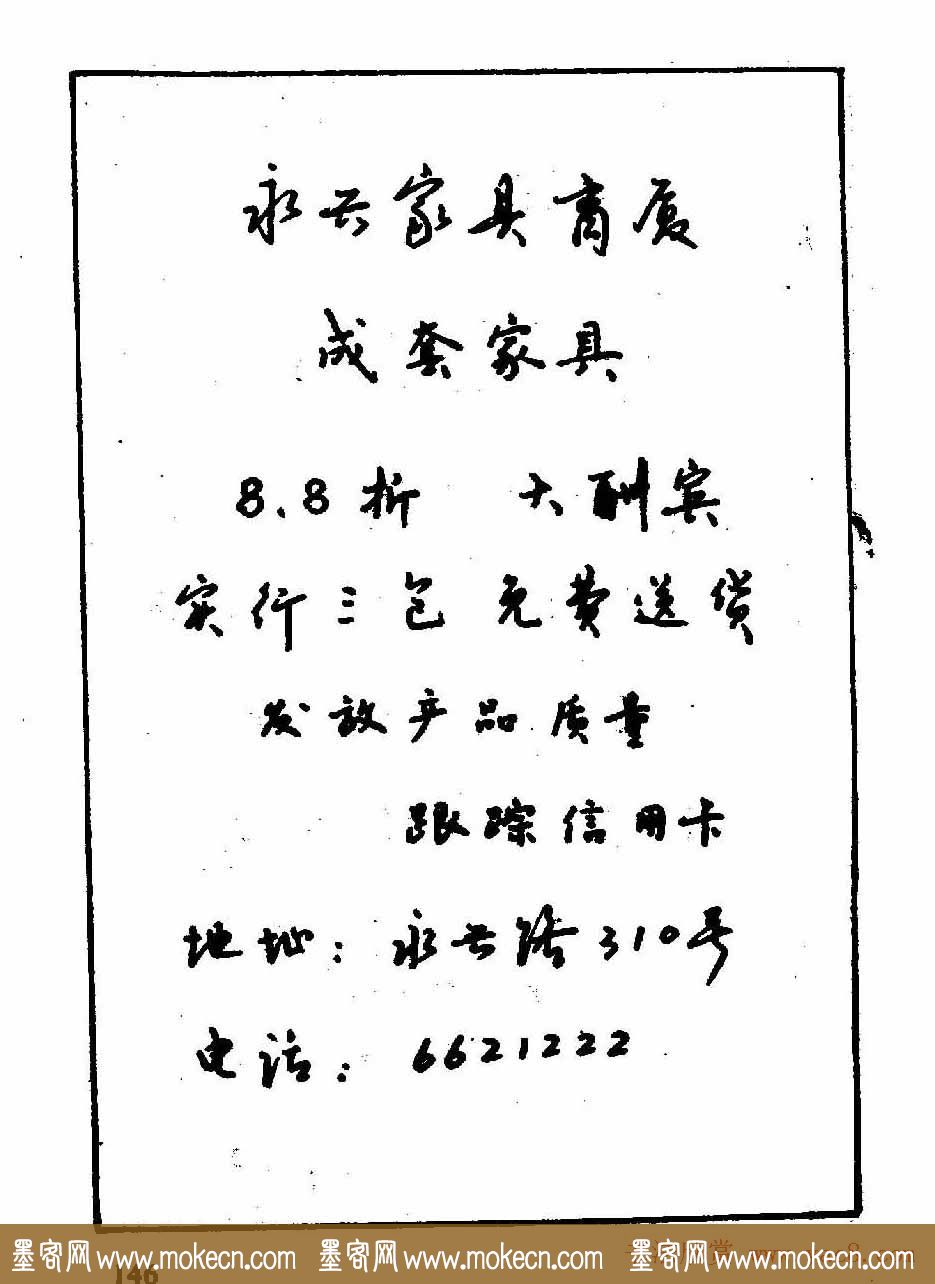 永兴家具商厦
成套家具
8.8折 大酬宾
实行三包 免费送货
发放产品质量
跟踪信用卡
地址：永兴路310号
电话：6621222
墨客网 www.mokecn.com 墨客网 www.mokecn.com 墨客网 www.mokecn.com
146